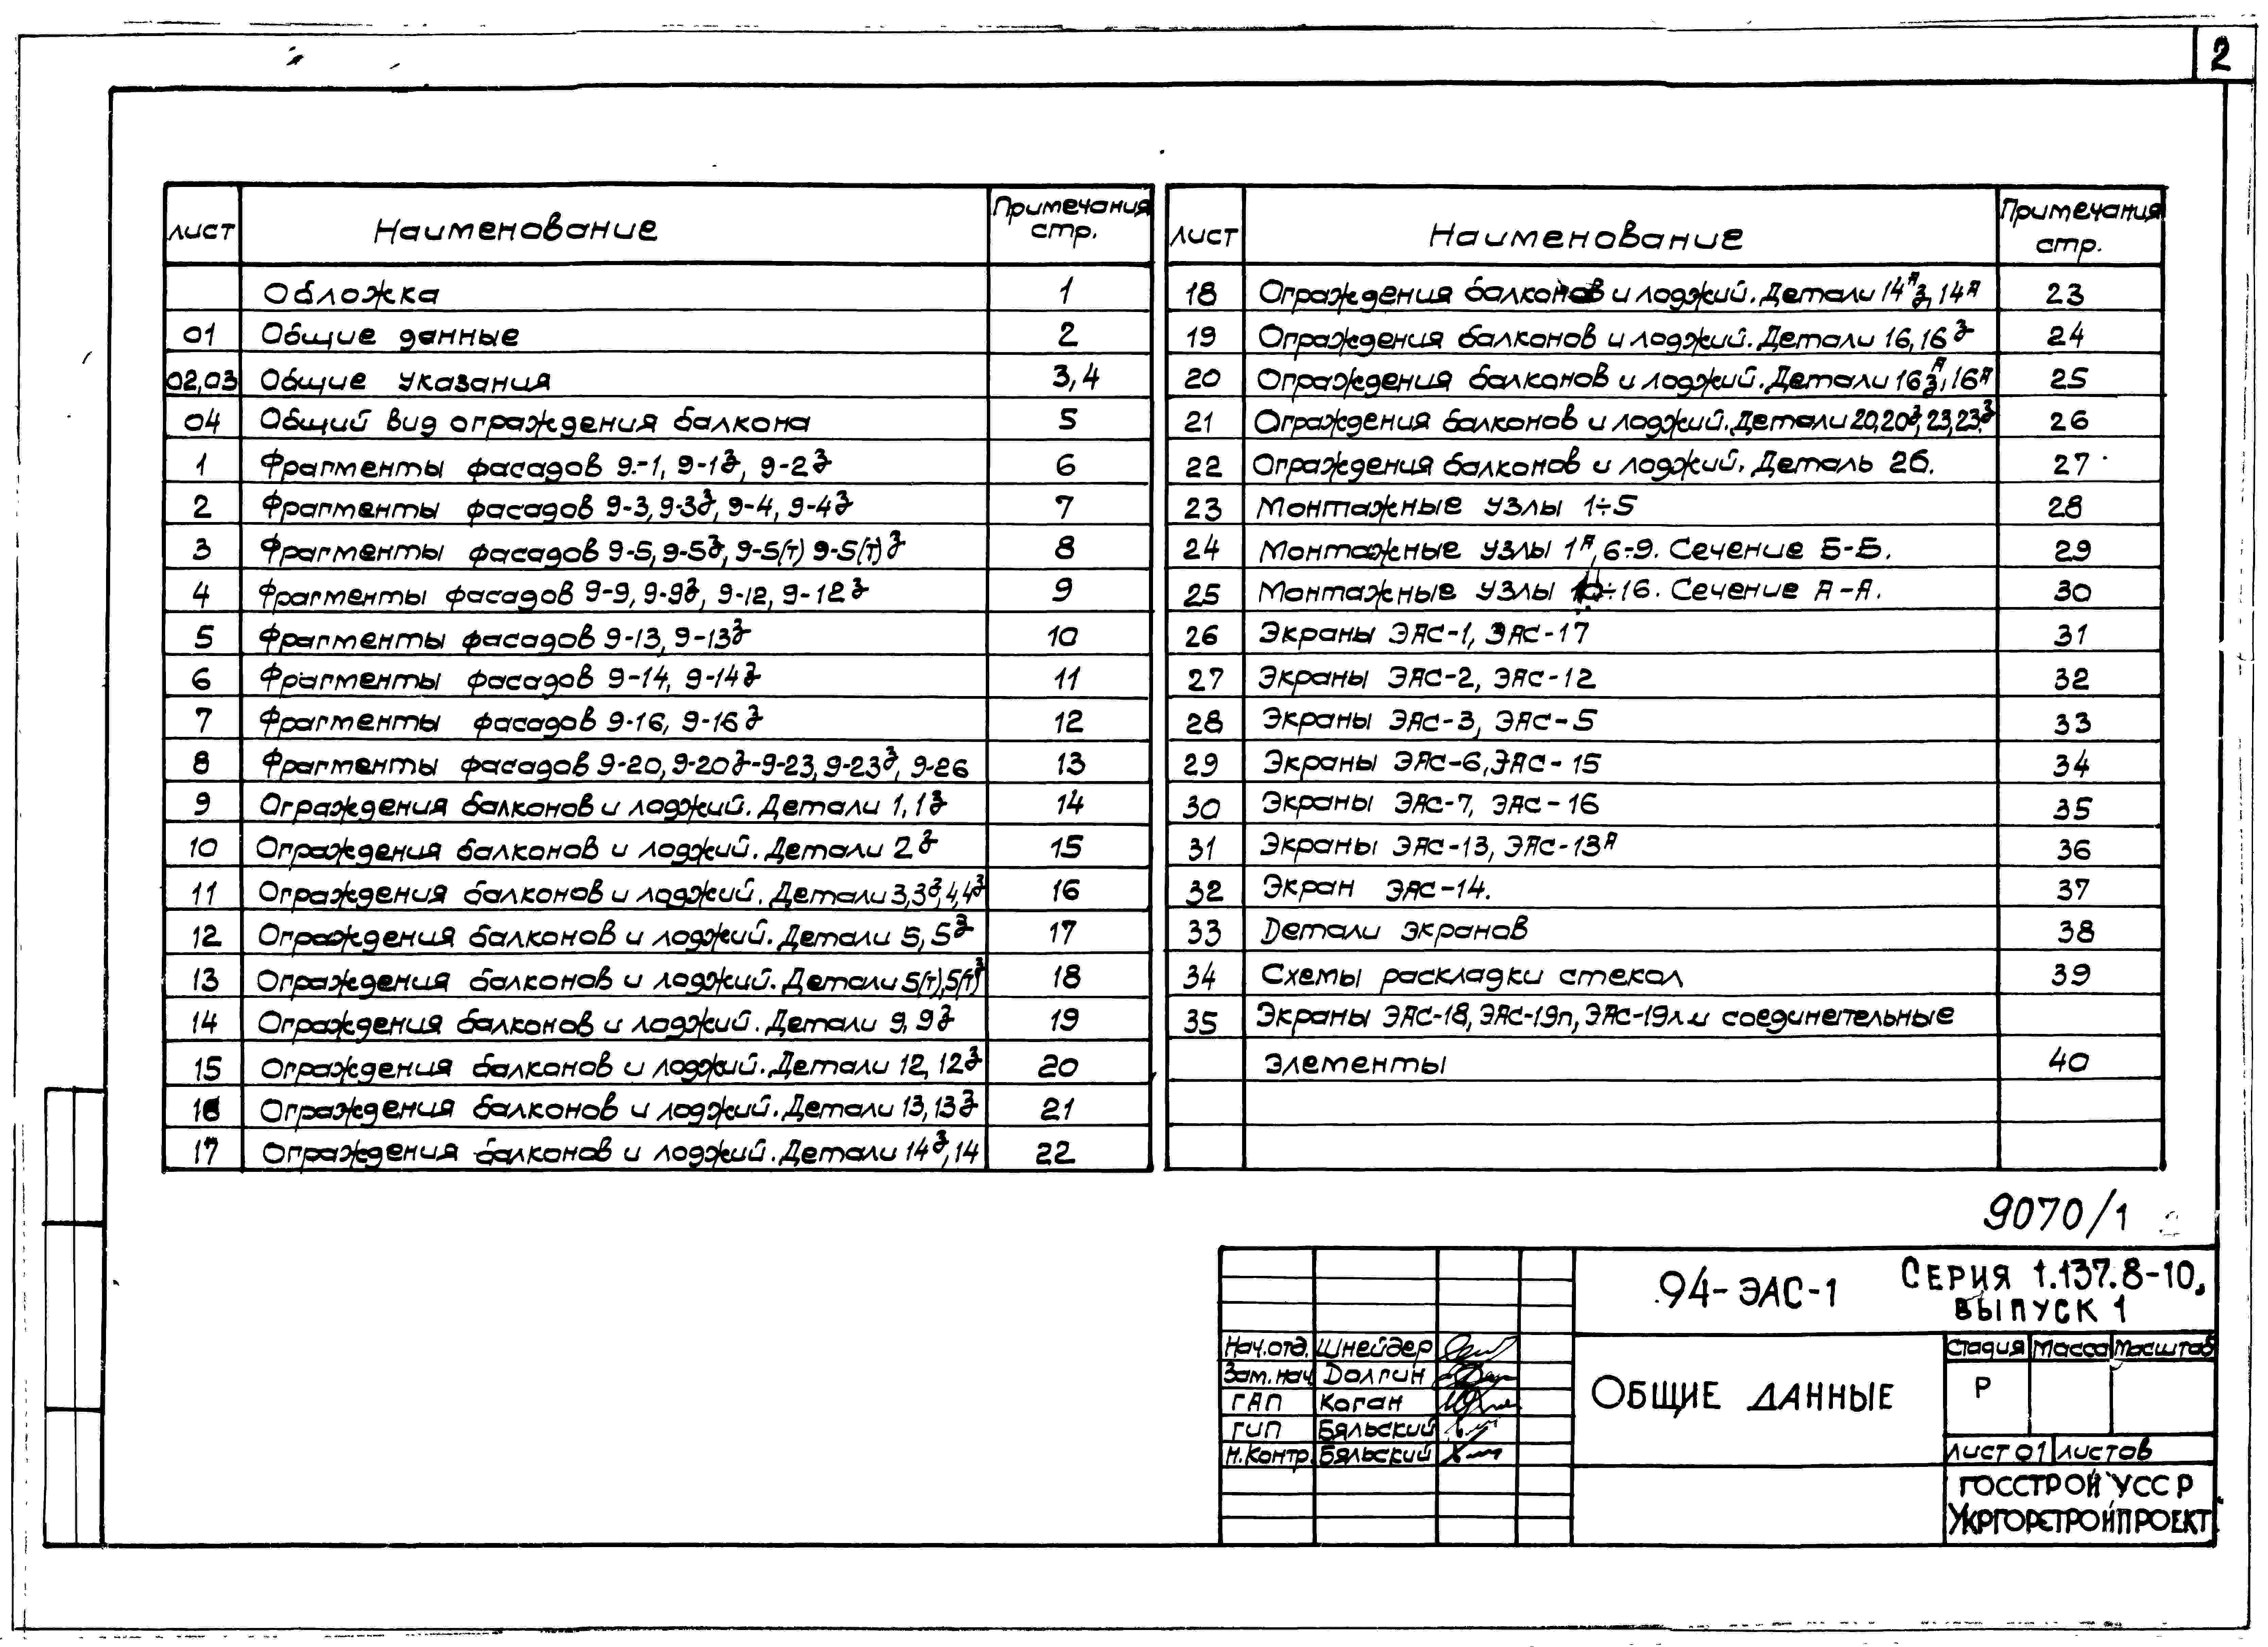 2
лист Наименование Примечания стр.
Обложка 1
01 Общие данные 2
02,03 Общие указания 3,4
04 Общий вид ограждения балкона 5
1 Фрагменты фасадов 9-1, 9-1з, 9-2з 6
2 Фрагменты фасадов 9-3, 9-3з, 9-4, 9-4з 7
3 Фрагменты фасадов 9-5, 9-5з, 9-5(т) 9-5(т)з 8
4 Фрагменты фасадов 9-9, 9-9з, 9-12, 9-12з 9
5 Фрагменты фасадов 9-13, 9-13з 10
6 Фрагменты фасадов 9-14, 9-14з 11
7 Фрагменты фасадов 9-16, 9-16з 12
8 Фрагменты фасадов 9-20, 9-20з-9-23, 9-23з, 9-26 13
9 Ограждения балконов и лоджий. Детали 1, 1з 14
10 Ограждения балконов и лоджий. Детали 2з 15
11 Ограждения балконов и лоджий. Детали 3,3з,4,4з 16
12 Ограждения балконов и лоджий. Детали 5, 5з 17
13 Ограждения балконов и лоджий. Детали 5(т),5(т)з 18
14 Ограждения балконов и лоджий. Детали 9, 9з 19
15 Ограждения балконов и лоджий. Детали 12, 12з 20
16 Ограждения балконов и лоджий. Детали 13, 13з 21
17 Ограждения балконов и лоджий. Детали 14з, 14 22
лист Наименование Примечания стр.
18 Ограждения балконов и лоджий. Детали 14Аз, 14А 23
19 Ограждения балконов и лоджий. Детали 16, 16з 24
20 Ограждения балконов и лоджий. Детали 16Аз, 16А 25
21 Ограждения балконов и лоджий. Детали 20,20з,23,23з 26
22 Ограждения балконов и лоджий. Деталь 26. 27
23 Монтажные узлы 1÷5 28
24 Монтажные узлы 1А, 6÷9. Сечение Б-Б. 29
25 Монтажные узлы 10÷16. Сечение А-А. 30
26 Экраны ЭАС-1, ЭАС-17 31
27 Экраны ЭАС-2, ЭАС-12 32
28 Экраны ЭАС-3, ЭАС-5 33
29 Экраны ЭАС-6, ЭАС-15 34
30 Экраны ЭАС-7, ЭАС-16 35
31 Экраны ЭАС-13, ЭАС-13А 36
32 Экран ЭАС-14. 37
33 Детали экранов 38
34 Схемы раскладки стекол 39
35 Экраны ЭАС-18, ЭАС-19п, ЭАС-19л и соединительные
элементы 40
9070/1 2
94-ЭАС-1 Серия 1.137.8-10,
выпуск 1
Нач.отд. Шнейдер
Зам.нач Долгин
ГАП Коган
ГИП Бяльский
Н.контр. Бяльский
Общие данные
Стадия Масса Масштаб
Р
лист 01 листов
Госстрой УССР
Укргорстройпроект